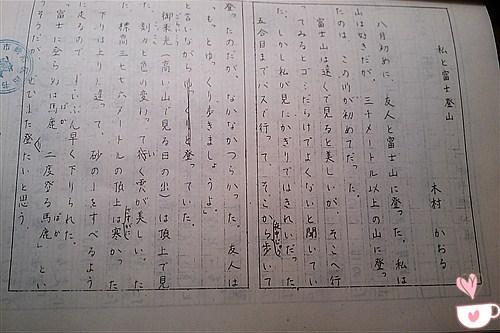 私と富士登山
木村 かおる
八月初めに、友人と富士山に登った。私は
山は好きだが、三千メートル以上の山に登っ
たのは、この時が初めてだった。
富士山は遠くで見ると美しいが、そこへ行
ってみるとゴミだらけでよくないと聞いてい
た。しかし私が見たかぎりではきれいだった。
五合目までバスで行って、そこから歩いて
登ったのだが、なかなかつらかった。友人は
、もっとゆっくり歩きましょうよ。」
と言いながら登っていた。
御来光(高い山で見る日の出)は頂上で見
た。刻々と色の変わって行く雲が美しい。
た。標高三七七六メートルの頂上は寒かった
下りは上りと違って、砂の上をすべるよう
に走るので、ずいぶん早く下りられた。
「富士に登らぬは馬鹿、二度登る馬鹿」とい
うそうだが、ぜひまた登りたいと思う